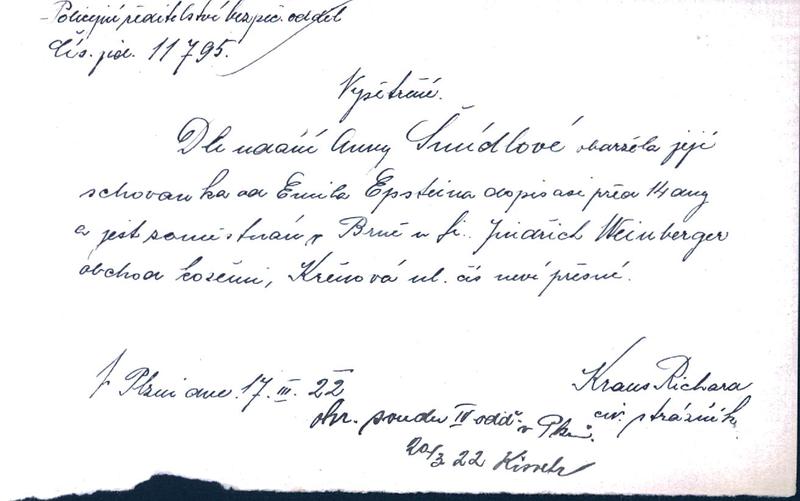 Policejní ředitelství bezpeč. odděl
Čís. jed. 11795.
Vyšetřění.
Dle udání Anny Šmídlové obdržela její
schovanka od Emila Epsteina dopis asi před 14 dny
a jest zaměstnán v Brně u fi. Jindřich Weinberger
obchod kožemi, Křenová ul. čís neví přesně.
V Plzni dne 17. III. 22
Kraus Richard
civ. strážník
okr. soudu IV odd. v Plzni.
20/3 22